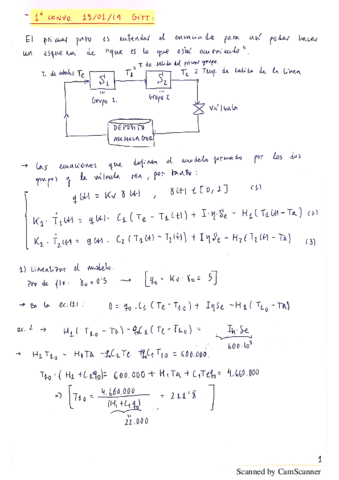 - 1ª CONVO. 15/01/19 GITT:
El primer paso es entender el enunciado para así poder hacer
un esquema de "que es lo que está ocurriendo".
T. de salida del primer grupo.
T. de entrada Te
S1
T1
S2
T2 = Temp. de salida de la línea
Grupo 1.
Grupo 2
Válvula
DEPÓSITO
→ Las ecuaciones que definen el modelo formado por los dos
grupos y la válvula son, por tanto:
q(t) = Kv γ(t), γ(t) ∈ [0,1] (1)
K1 · Ṫ1(t) = q(t) · C1 (Te - T1(t)) + I·η Se - H1 (T1(t) - Ta) (2)
K2 · Ṫ2(t) = q(t) · C2 (T1(t) - T2(t)) + I η Se - H2 (T2(t) - Ta) (3)
1) Linealizar el modelo.
γ0 = 0'5 → [q0 = Kv · γ0 = 5]
→ En la ec. (2): 0 = q0 · C1 (Te - T10) + I η Se - H1 (T10 - Ta)
ec. 2 → H1 (T10 - Ta) - q0 C1 (Te - T10) = I η Se
600·10³
→ H1 T10 - H1 Ta - q0 C1 Te + q0 C1 T10 = 600.000.
T10 · (H1 + C1 q0) = 600.000 + H1 Ta + C1 Te q0 = 4.660.000
⇒ [T10 = 4.660.000 / (H1 + C1 q0) = 211'8]
22.000
1
Scanned by CamScanner